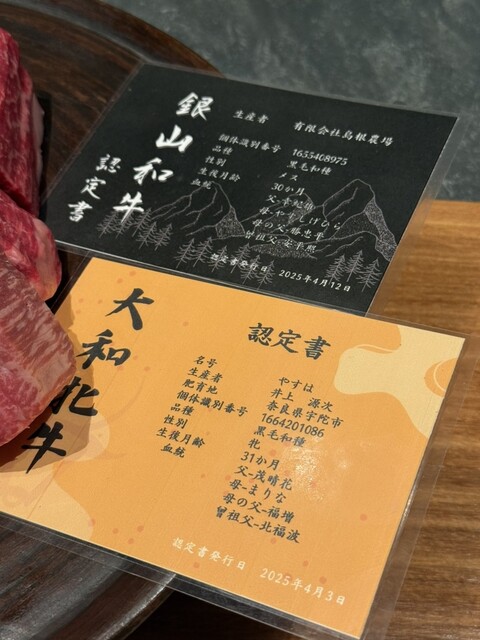 銀山和牛
認定書
生産者 有限会社島根農場
個体識別番号 1655408975
品種 黒毛和種
性別 メス
生後月齢 30か月
血統 父-幸陀
母-やすしげひら
母の父-勝忠平
曽祖父-安平照
認定書発行日 2025年4月12日
大和牝牛
認定書
名号 やすは
生産者 井上 源次
肥育地 奈良県宇陀市
個体識別番号 1664201086
品種 黒毛和種
性別 牝
生後月齢 31か月
血統 父-茂晴花
母-まりな
母の父-福増
曽祖父-北福波
認定書発行日 2025年4月3日